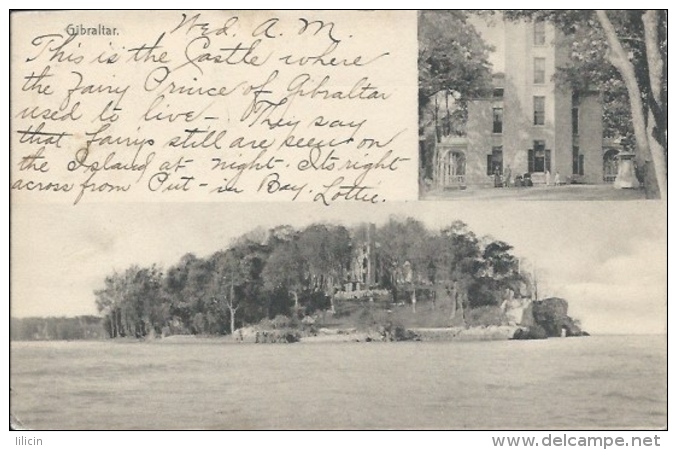 Gibraltar.
Wed. A. M.
This is the Castle where
the Fairy Prince of Gibraltar
used to live - They say
that fairys still are seen on
the Island at night. Its right
across from Put-in Bay. Lottie.
lilicin
www.delcampe.net